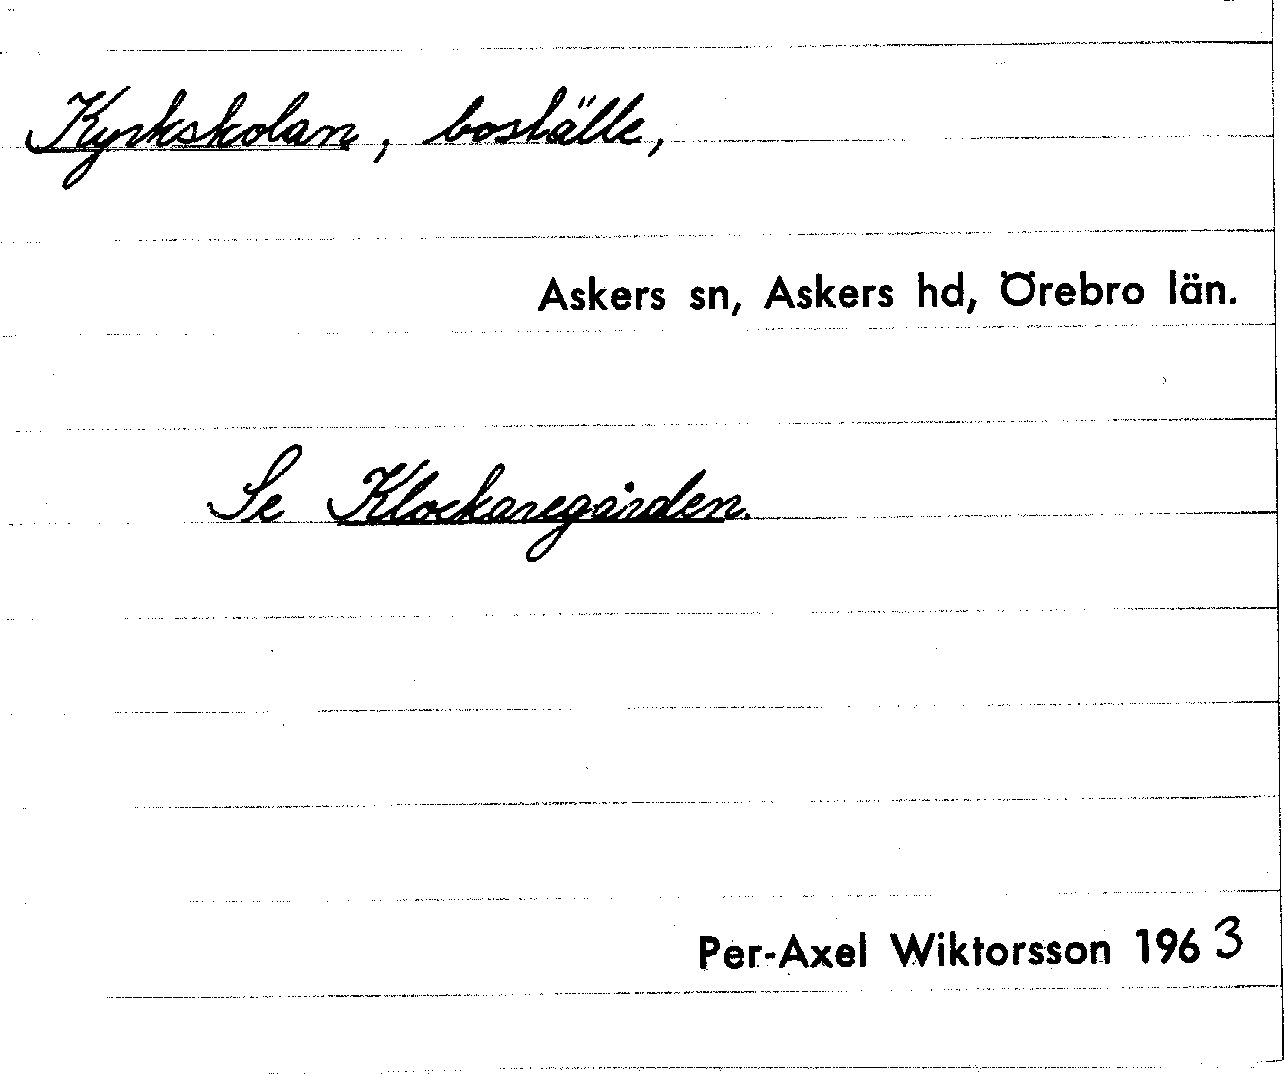 Kyrkskolan, boställe,
Askers sn, Askers hd, Örebro län.
Se Klockaregården.
Per-Axel Wiktorsson 1963